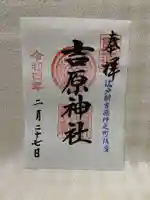 奉拝
吉原神社
令和四年
二月二十七日